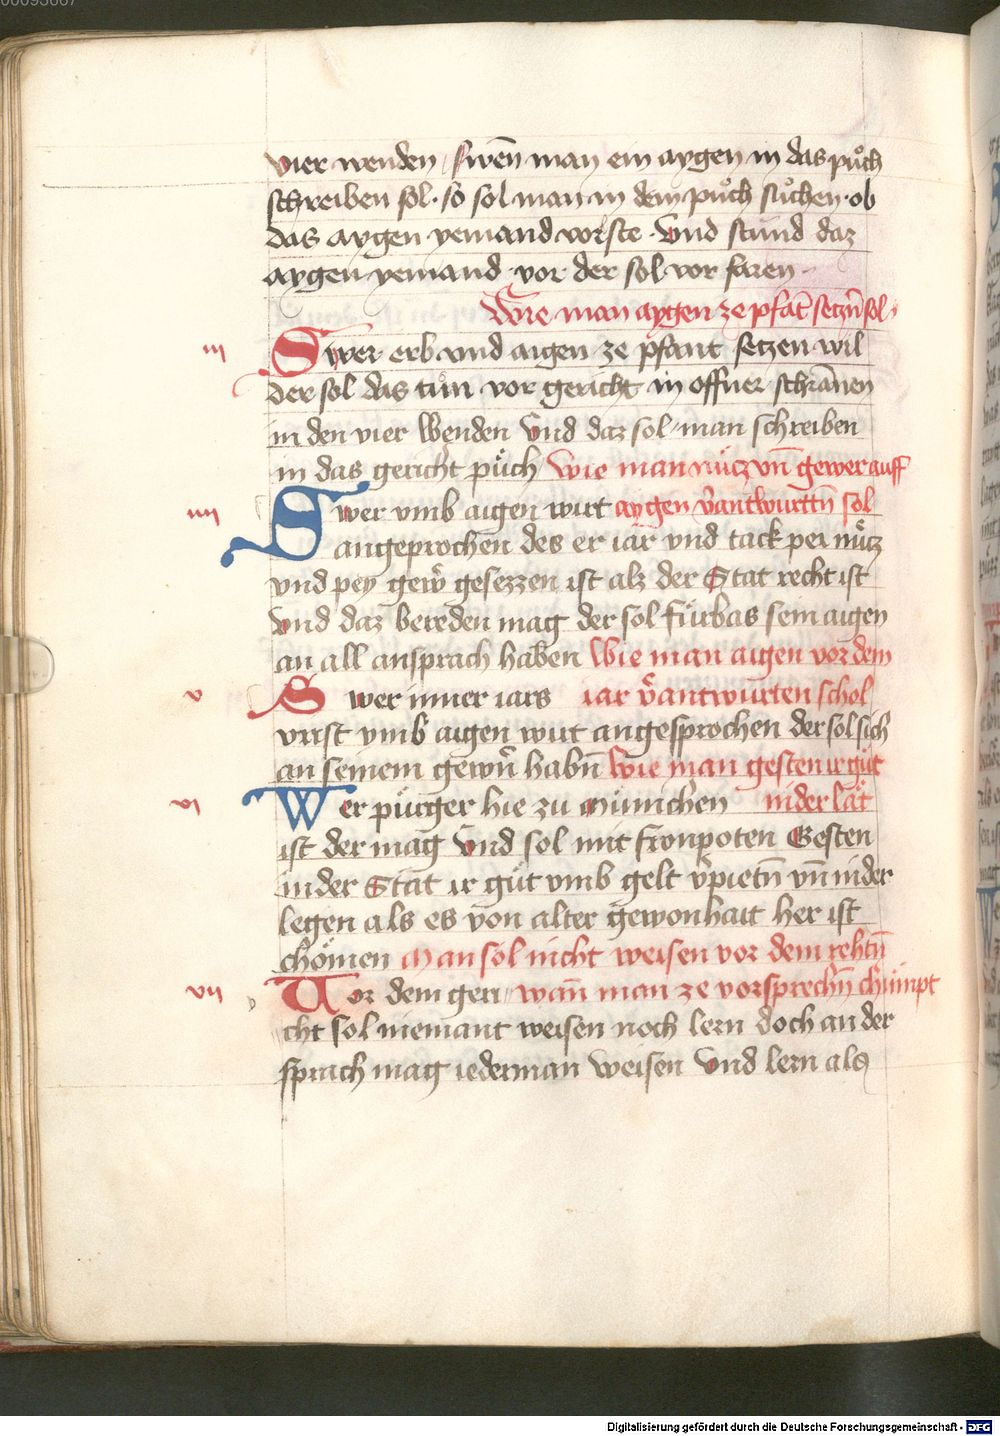 vier wenden / swen̄ man ein aygen in das půch
schreiben sol · so sol man in dem půch sůchen · ob
das aygen yemand vorste · Vnd stund daz
aygen yemand · vor der sol vor faren ·
Wie man aygen ze pfāt seczn̄ sol ·
iii Swer erb vnd aigen ze pfant seczen wil
der sol das tůn vor gericht in offner schrānen
in den vier Wenden Vnd daz sol man schreiben
in das gericht půch Wie man nücz vn̄ gewer auff
iiii Swer vmb aigen wirt aygen v̄antwurttn̄ sol
angeprochen des er iar vnd tack pei nücz
vnd pey gew̄ gesezzen ist alz der Stat recht ist
Vnd daz bereden mag der sol fürbas sein aigen
an all ansprach haben Wie man aigen vor dem
v Swer inner iars iar v̄antwurten schol
vrist vmb aigen wirt angesprochen der sol sich
an seinem gewn̄ habn̄ Wie man gesten ir gůt
vi Wer pürger hie zu münichen nider lät
ist der mag Vnd sol mit fronpoten Gesten
in der Stat ir gůt vmb gelt v̄pietn̄ vn̄ nider
legen als es von alter gewonhait her ist
chömen Man sol nicht weisen vor dem rehtn̄
vii Vor dem geri wan̄ man ze vorsprechn̄ chümpt
cht sol niemant weisen noch lern doch an der
sprach mag iederman weisen Vnd lern als
Digitalisierung gefördert durch die Deutsche Forschungsgemeinschaft - DFG